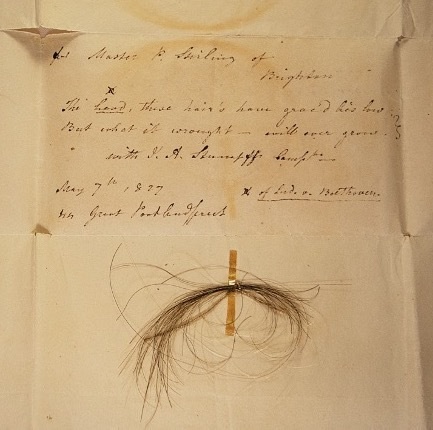 for Master P. Stirling of
Brighton
x
The head, these hair's have grac'd lies low
But what it wrought — will ever grow.
with J. A. Stumpff
May 7th, 1827 x of Lud. v. Beethoven.
44 Great Portland Street